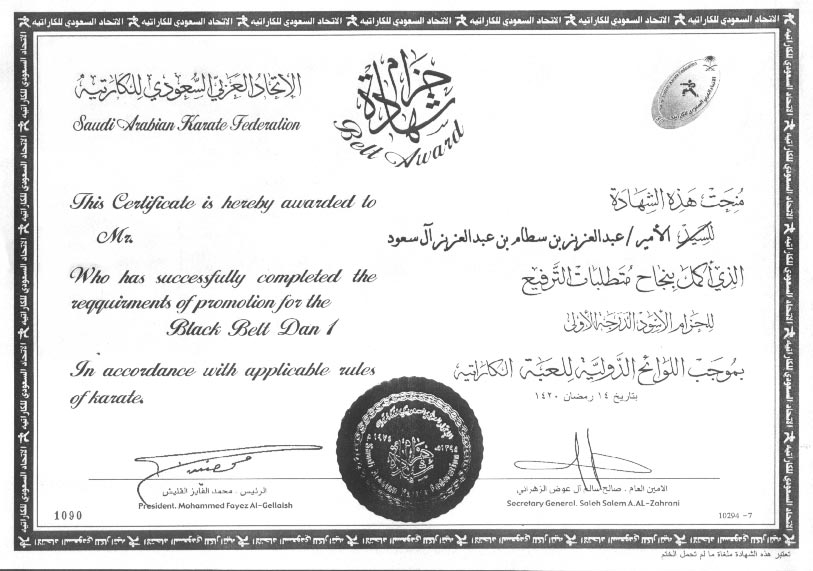 الاتحاد السعودي للكاراتيه
الإتحاد العربي السعودي للكاراتيه
Saudi Arabian Karate Federation
شهادة حزام
Belt Award
This Certificate is hereby awarded to
Mr.
Who has successfully completed the
reqquirments of promotion for the
Black Belt Dan 1
In accordance with applicable rules
of karate.
مُنِحَتْ هَذِهِ الشَّهَادَة
للسيد الأمير / عبدالعزيز بن سطام بن عبدالعزيز آل سعود
الذي أكمل بنجاح متطلبات الترفيع
للحزام الأسود الدرجة الأولى
بموجب اللوائح الدولية للعبة الكاراتية
بتاريخ ١٤ رمضان ١٤٢٠
١٩٧٥م
١٣٩٥هـ
الرئيس . محمد الفايز القليش
President. Mohammed Fayez Al-Gellaish
الامين العام . صالح سالم آل عوض الزهراني
Secretary General. Saleh Salem A.AL-Zahrani
1090
10294 -7
تعتبر هذه الشهادة ملغاة ما لم تحمل الختم